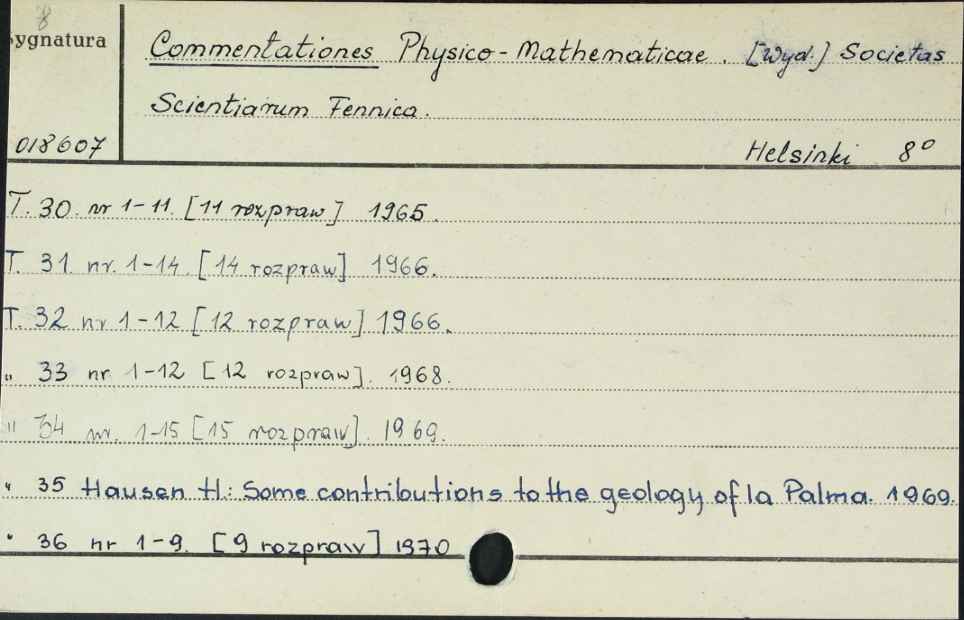 8
Sygnatura
Commentationes Physico-Mathematicae. [Wyd.] Societas
Scientiarum Fennica.
018607
Helsinki 8°
T. 30. nr 1-11. [11 rozpraw] 1965.
T. 31. nr. 1-14. [14 rozpraw] 1966.
T. 32 nr 1-12 [12 rozpraw] 1966.
" 33 nr 1-12 [12 rozpraw]. 1968.
" 34 nr. 1-15 [15 rozpraw]. 1969.
" 35 Hausen H.: Some contributions to the geology of la Palma. 1969.
" 36 nr 1-9. [9 rozpraw] 1970